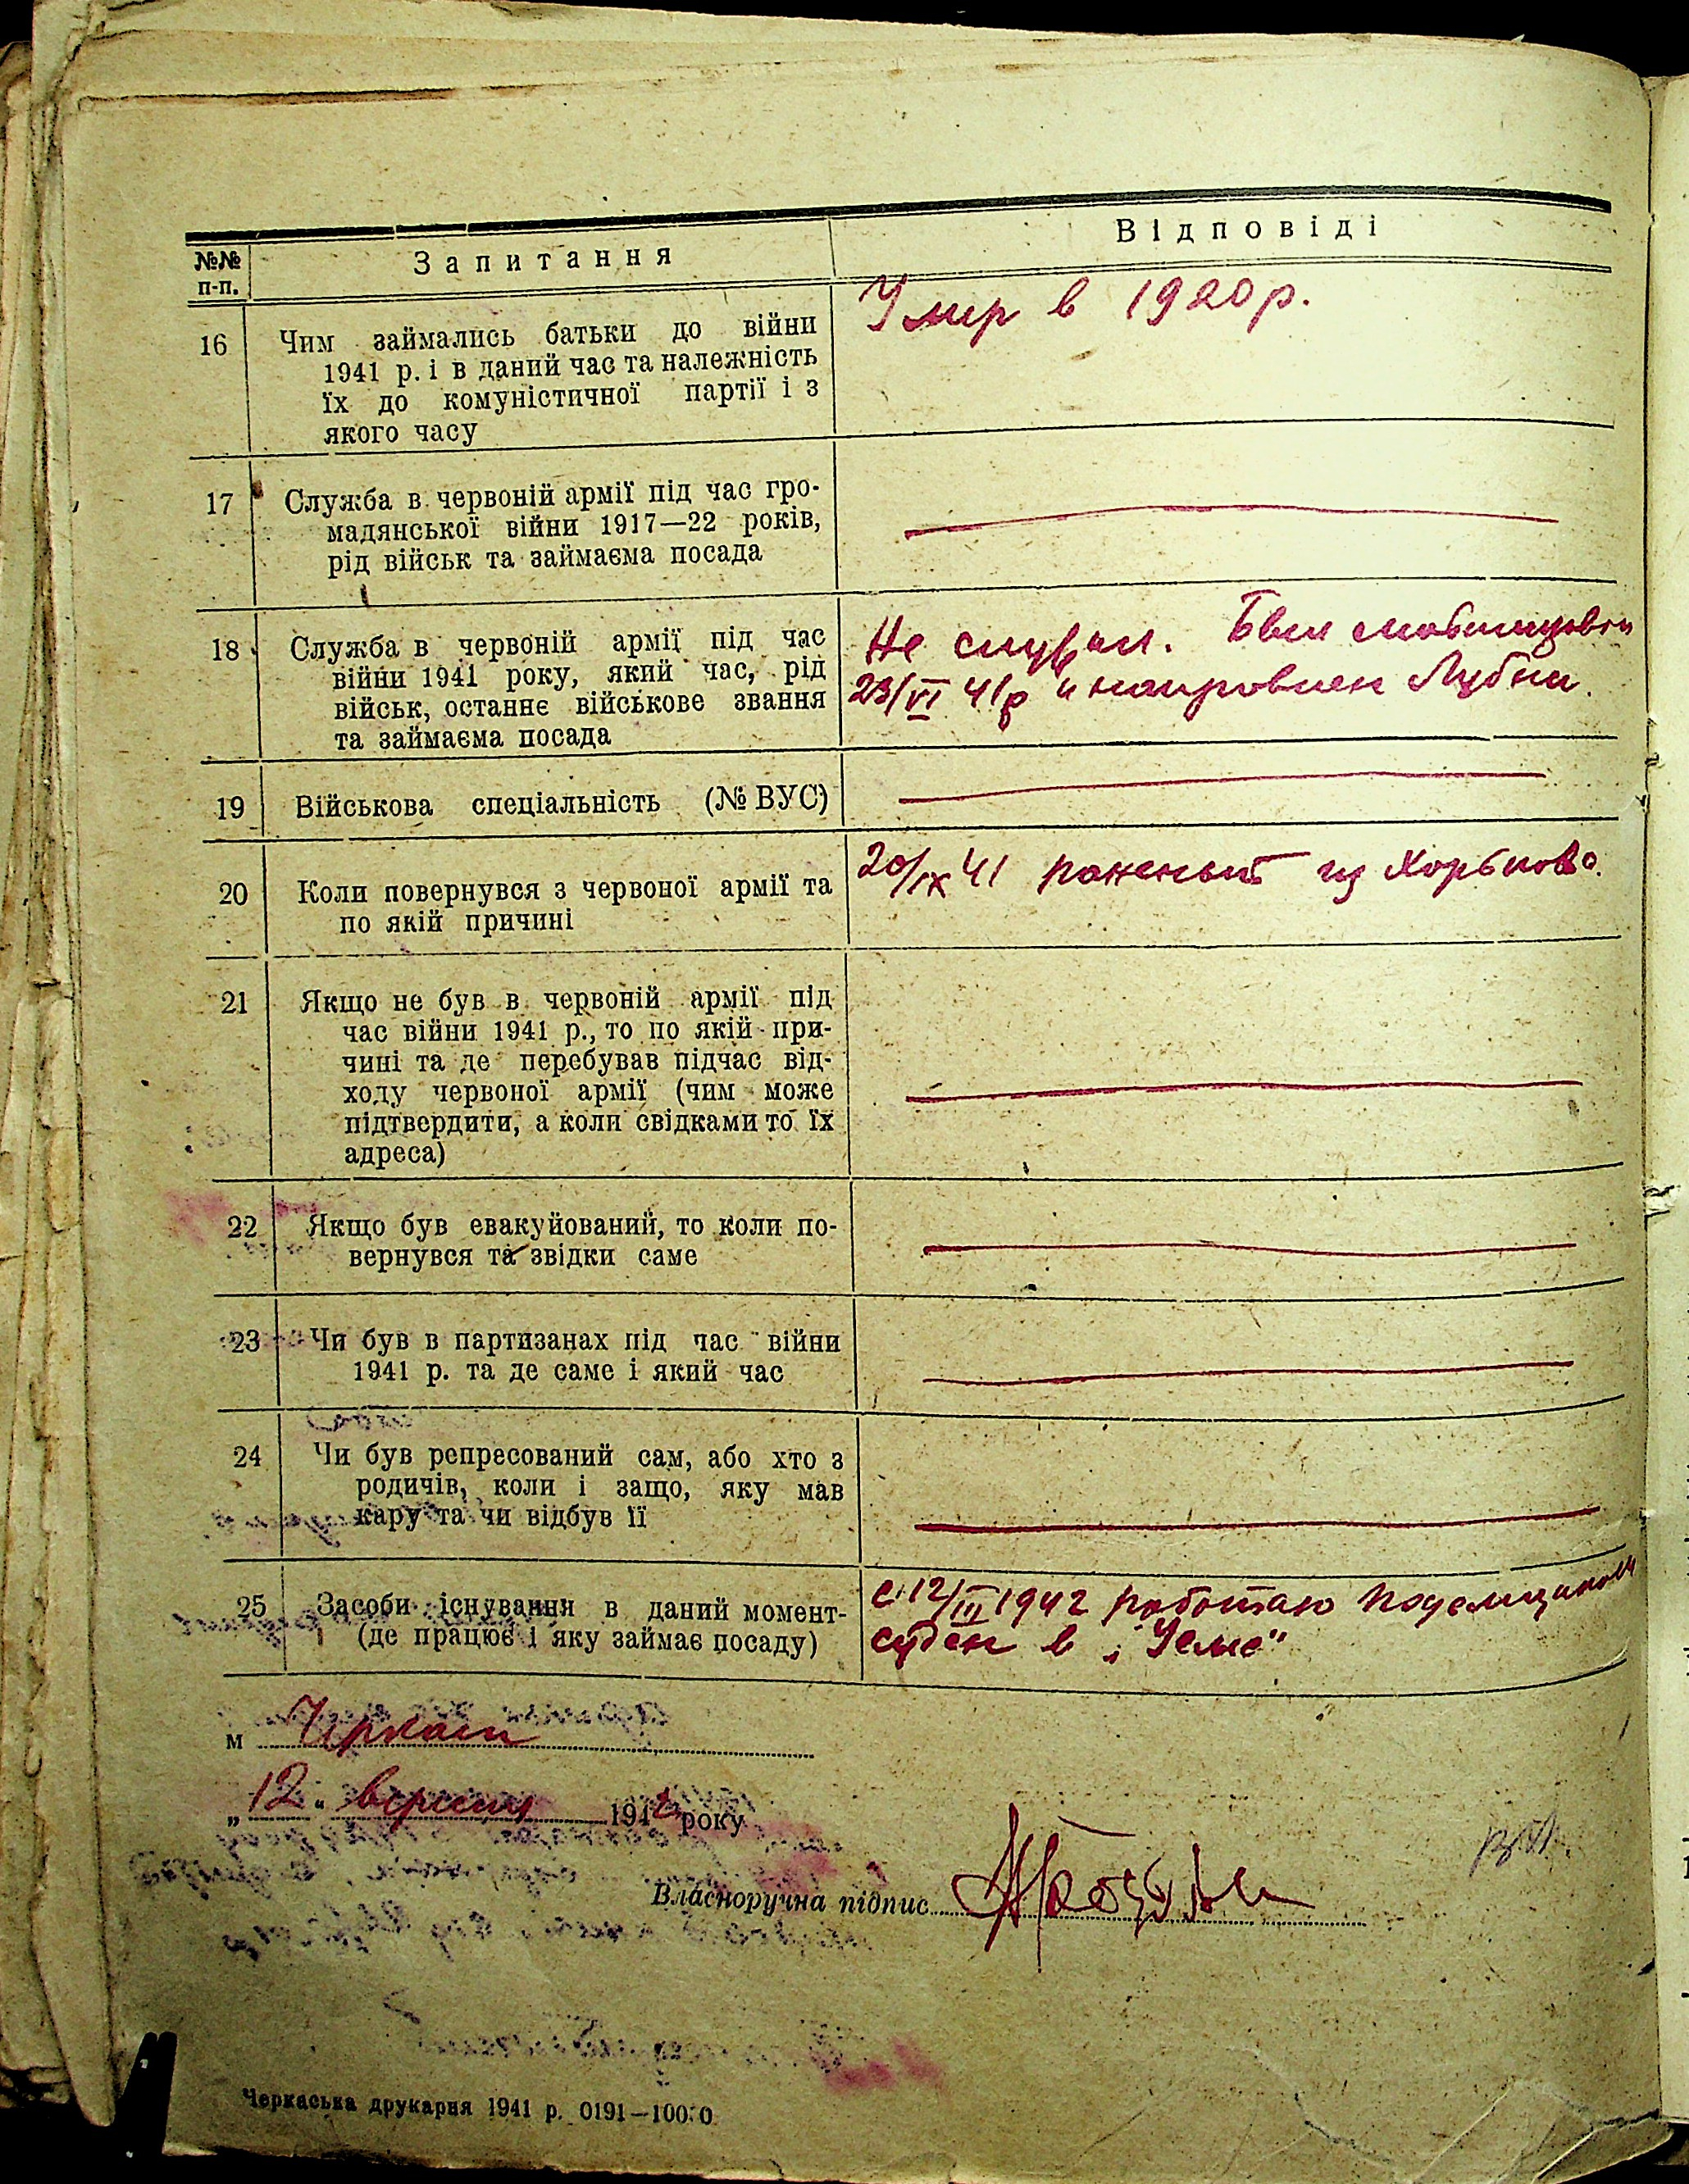 №№ п-п.
Запитання
Відповіді
16
Чим займались батьки до війни
1941 р. і в даний час та належність
їх до комуністичної партії і з
якого часу
Умер в 1920 р.
17
Служба в червоній армії під час гро-
мадянської війни 1917—22 років,
рід військ та займаєма посада
18
Служба в червоній армії під час
війни 1941 року, який час, рід
військ, останнє військове звання
та займаєма посада
Не служил. Был мобилизован
23/VI 41 р и направлен Лубни.
19
Військова спеціальність (№ ВУС)
20
Коли повернувся з червоної армії та
по якій причині
20/IX 41 раненый из
21
Якщо не був в червоній армії під
час війни 1941 р., то по якій при-
чині та де перебував підчас від-
ходу червоної армії (чим може
підтвердити, а коли свідками то їх
адреса)
22
Якщо був евакуйований, то коли по-
вернувся та звідки саме
23
Чи був в партизанах під час війни
1941 р. та де саме і який час
24
Чи був репресований сам, або хто з
родичів, коли і защо, яку мав
кару та чи відбув її
25
Засоби існування в даний момент-
(де працює і яку займає посаду)
с 12/III 1942 работаю
в
м Черкаси
„12" вересня 1942 року
Власноручна підпис
Черкаська друкарня 1941 р. 0191—10000